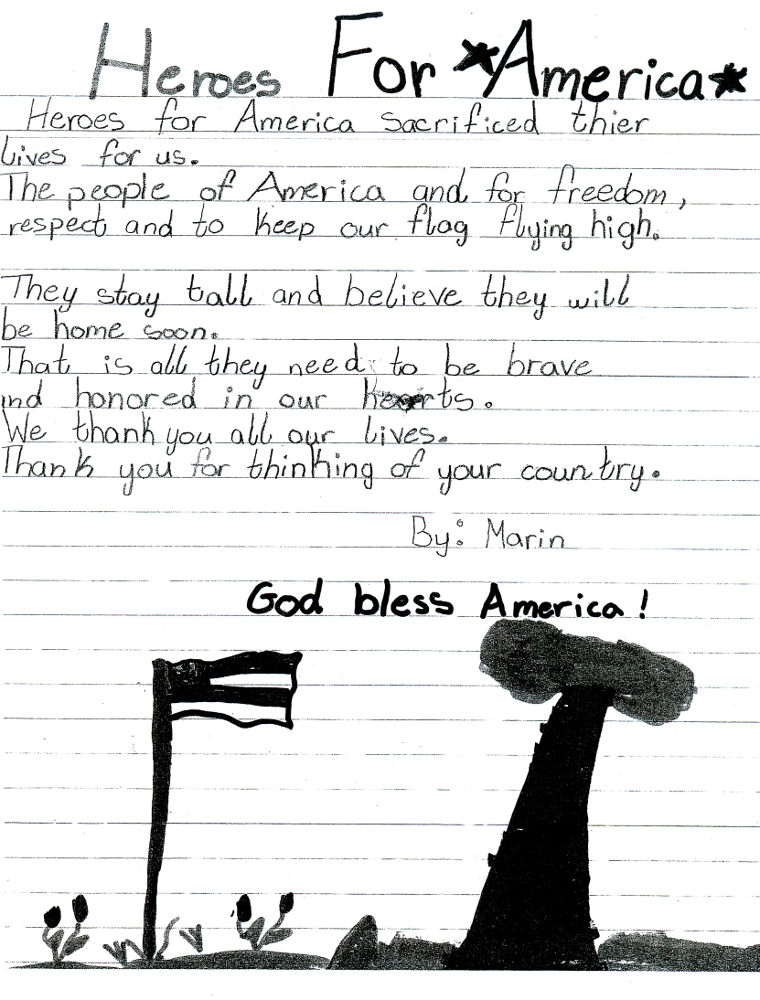 Heroes For *America*
Heroes for America sacrificed thier
lives for us.
The people of America and for freedom,
respect and to keep our flag flying high.
They stay tall and believe they will
be home soon.
That is all they need to be brave
and honored in our hearts.
We thank you all our lives.
Thank you for thinking of your country.
By: Marin
God bless America!